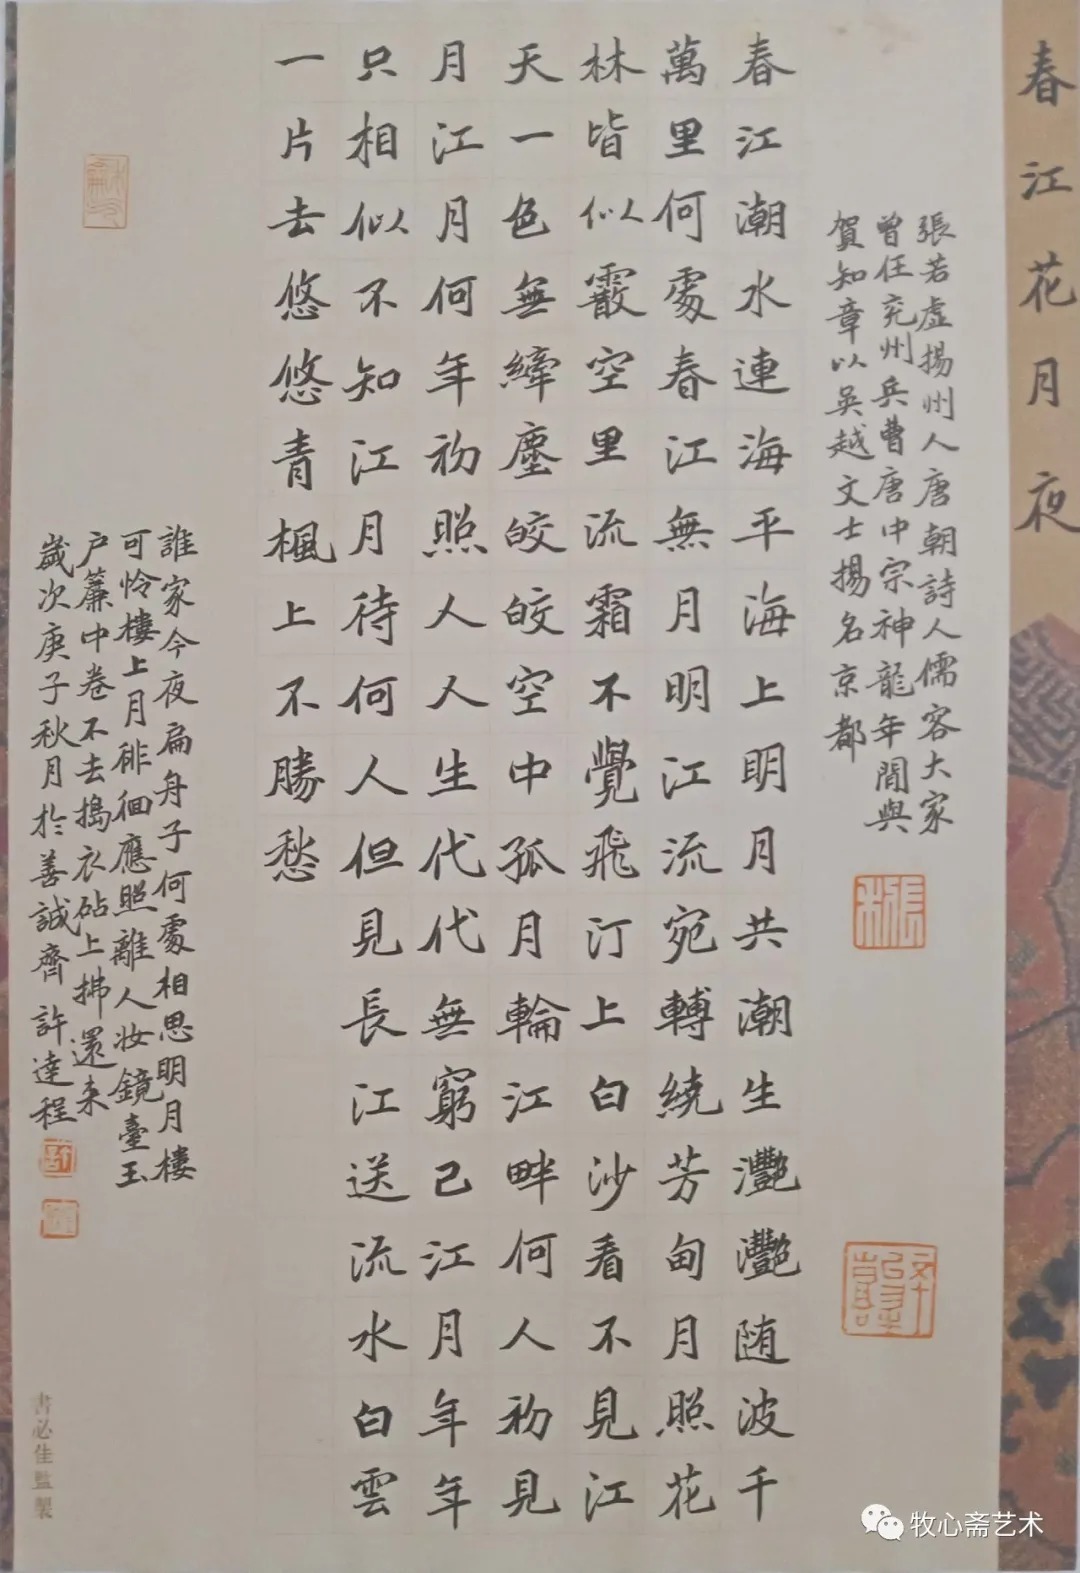 春江花月夜
張若虛揚州人唐朝詩人儒容大家
曾任兖州兵曹唐中宗神龍年間與
賀知章以吳越文士揚名京都
春江潮水連海平海上明月共潮生灩灩随波千
萬里何處春江無月明江流宛轉繞芳甸月照花
林皆似霰空里流霜不覺飛汀上白沙看不見江
天一色無纖塵皎皎空中孤月輪江畔何人初見
月江月何年初照人人生代代無窮已江月年年
只相似不知江月待何人但見長江送流水白雲
一片去悠悠青楓上不勝愁
誰家今夜扁舟子何處相思明月樓
可怜樓上月徘徊應照離人妝鏡臺玉
户簾中卷不去搗衣砧上拂還来
歲次庚子秋月於善誠齊許達程
書必佳監製
牧心斋艺术